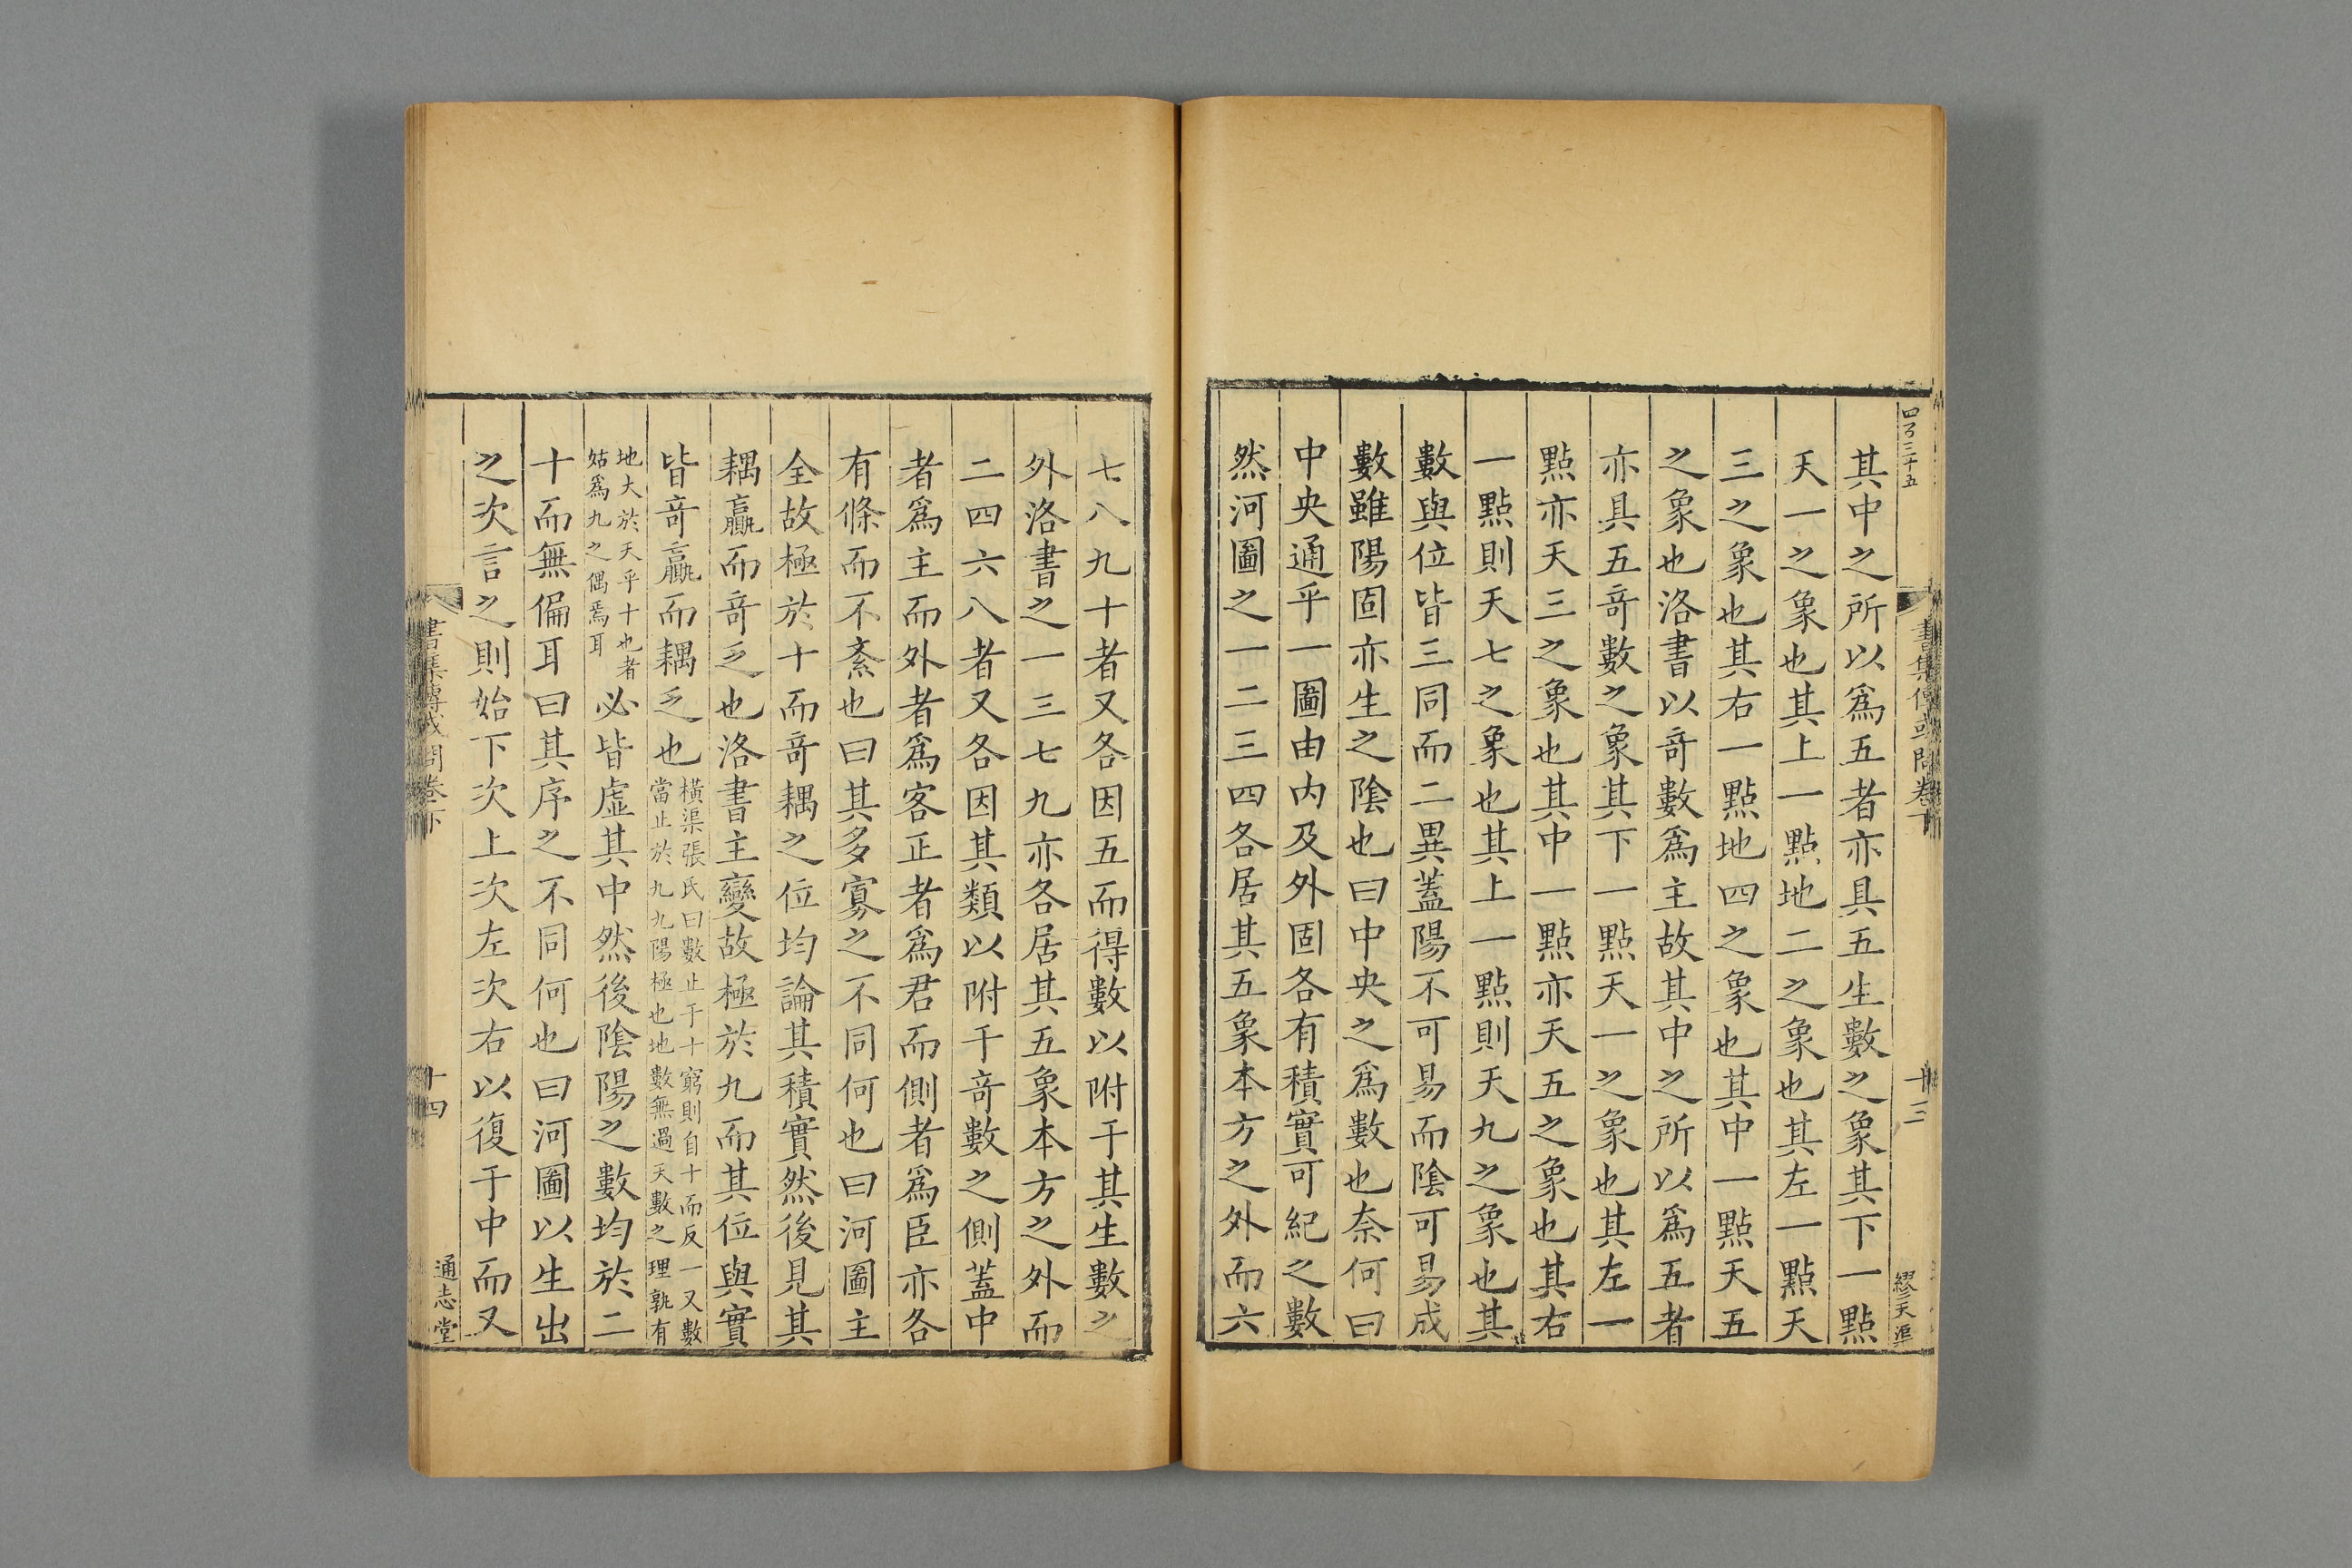 四百三十五
書集傳或問卷下
十三
繆天運
其中之所以爲五者亦具五生數之象其下一點
天一之象也其上一點地二之象也其左一點天
三之象也其右一點地四之象也其中一點天五
之象也洛書以竒數爲主故其中之所以爲五者
亦具五竒數之象其下一點天一之象也其左一
點亦天三之象也其中一點亦天五之象也其右
一點則天七之象也其上一點則天九之象也其
數與位皆三同而二異蓋陽不可易而陰可易成
數雖陽固亦生之陰也曰中央之爲數也奈何曰
中央通乎一圖由内及外固各有積實可紀之數
然河圖之一二三四各居其五象本方之外而六
七八九十者又各因五而得數以附于其生數之
外洛書之一三七九亦各居其五象本方之外而
二四六八者又各因其類以附于竒數之側蓋中
者爲主而外者爲客正者爲君而側者爲臣亦各
有條而不紊也曰其多寡之不同何也曰河圖主
全故極於十而竒耦之位均論其積實然後見其
耦贏而竒乏也洛書主變故極於九而其位與實
皆竒贏而耦乏也橫渠張氏曰數止于十窮則自十而反一又數
當止於九九陽極也地數無過天數之理孰有
地大於天乎十也者
姑爲九之偶焉耳必皆虛其中然後陰陽之數均於二
十而無偏耳曰其序之不同何也曰河圖以生出
之次言之則始下次上次左次右以復于中而又
書集傳或問卷下
十四
通志堂